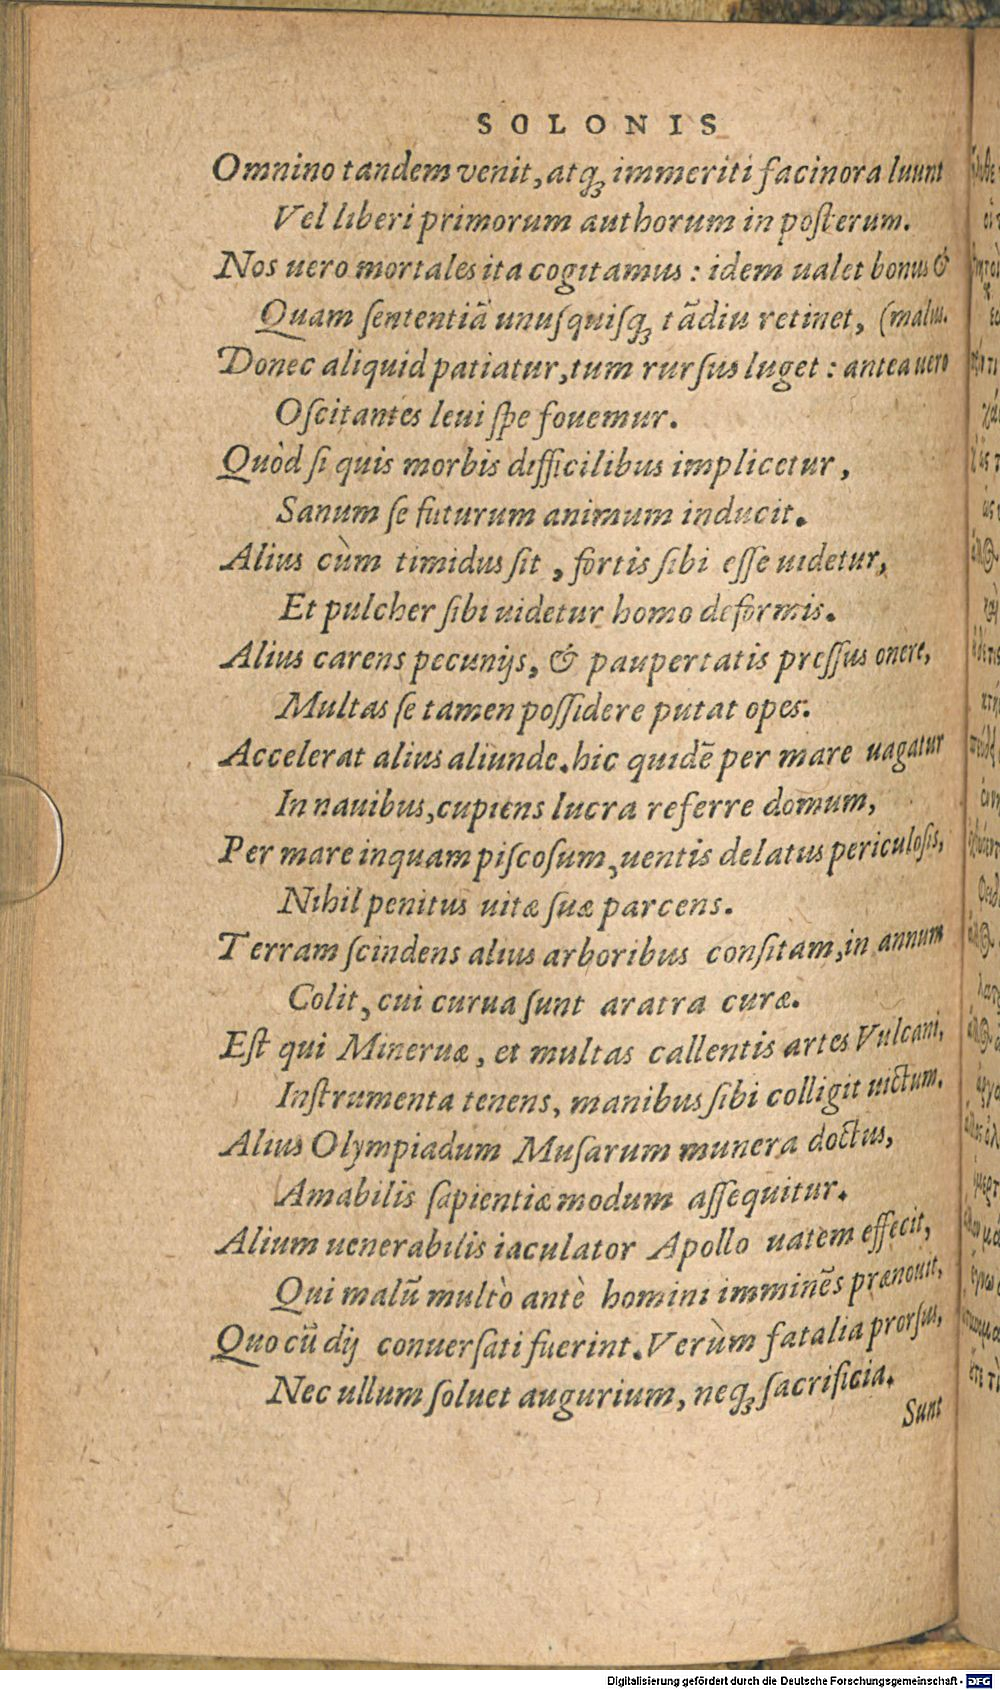 SOLONIS
Omnino tandem venit, atqꝫ immeriti facinora luunt
Vel liberi primorum authorum in poſterum.
Nos uero mortales ita cogitamus: idem ualet bonus &
Quam ſententiā unuſquiſqꝫ tādiu retinet, (malus.
Donec aliquid patiatur, tum rurſus luget: antea uero
Oſcitantes leui ſpe fouemur.
Quòd ſi quis morbis difficilibus implicetur,
Sanum ſe futurum animum inducit.
Alius cùm timidus ſit, fortis ſibi eſſe uidetur,
Et pulcher ſibi uidetur homo deformis.
Alius carens pecunijs, & paupertatis preſſus onere,
Multas ſe tamen poſſidere putat opes.
Accelerat alius aliunde. hic quidē per mare uagatur
In nauibus, cupiens lucra referre domum,
Per mare inquam piſcoſum, uentis delatus periculoſis,
Nihil penitus uitæ ſuæ parcens.
Terram ſcindens alius arboribus conſitam, in annum
Colit, cui curua ſunt aratra curæ.
Eſt qui Mineruæ, et multas callentis artes Vulcani,
Inſtrumenta tenens, manibus ſibi colligit uictum.
Alius Olympiadum Muſarum munera doctus,
Amabilis ſapientiæ modum aſſequitur.
Alium uenerabilis iaculator Apollo uatem effecit,
Qui malū multò antè homini imminēs prænouit,
Quo cū dij conuerſati fuerint. Verùm fatalia prorſus,
Nec ullum ſoluet augurium, neqꝫ ſacrificia.
Sunt
Digitalisierung gefördert durch die Deutsche Forschungsgemeinschaft - DFG